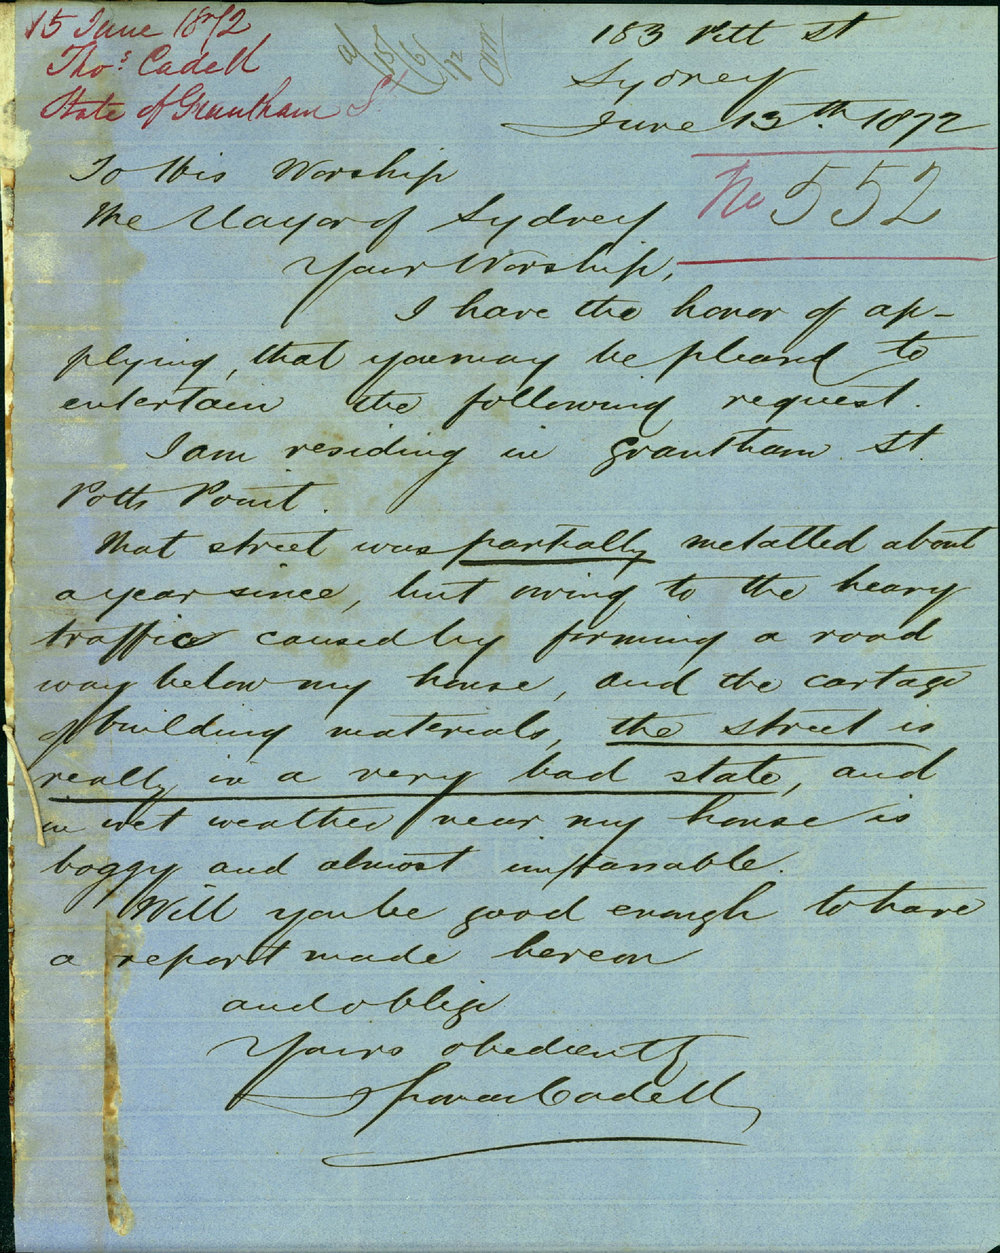 15 June 1872
Thos. Cadell
State of Grantham St
183 Pitt St
Sydney
June 13th. 1872
No 552
To His Worship
The Mayor of Sydney
Your Worship,
I have the honor of ap-
plying, that you may be pleased to
entertain the following request.
I am residing in Grantham St.
Potts Point.
That street was partially metalled about
a year since, but owing to the heavy
traffic caused by forming a road
way below my house, and the cartage
of building materials, the street is
really in a very bad state, and
in wet weather near my house is
boggy and almost impassable.
Will you be good enough to have
a report made hereon
and oblige
Yours obediently
Thomas Cadell